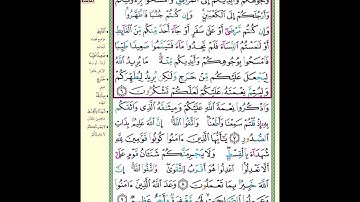 وُجُوهَكُمْ وَأَيْدِيَكُمْ إِلَى ٱلْمَرَافِقِ وَٱمْسَحُوا۟ بِرُءُوسِكُمْ
وَأَرْجُلَكُمْ إِلَى ٱلْكَعْبَيْنِ ۚ وَإِن كُنتُمْ جُنُبًا فَٱطَّهَّرُوا۟ ۚ
وَإِن كُنتُم مَّرْضَىٰٓ أَوْ عَلَىٰ سَفَرٍ أَوْ جَآءَ أَحَدٌ مِّنكُم مِّنَ ٱلْغَآئِطِ
أَوْ لَٰمَسْتُمُ ٱلنِّسَآءَ فَلَمْ تَجِدُوا۟ مَآءً فَتَيَمَّمُوا۟ صَعِيدًا طَيِّبًا
فَٱمْسَحُوا۟ بِوُجُوهِكُمْ وَأَيْدِيكُم مِّنْهُ ۚ مَا يُرِيدُ ٱللَّهُ
لِيَجْعَلَ عَلَيْكُم مِّنْ حَرَجٍ وَلَٰكِن يُرِيدُ لِيُطَهِّرَكُمْ
وَلِيُتِمَّ نِعْمَتَهُۥ عَلَيْكُمْ لَعَلَّكُمْ تَشْكُرُونَ ٦
وَٱذْكُرُوا۟ نِعْمَةَ ٱللَّهِ عَلَيْكُمْ وَمِيثَٰقَهُ ٱلَّذِى وَاثَقَكُم
بِهِۦٓ إِذْ قُلْتُمْ سَمِعْنَا وَأَطَعْنَا ۖ وَٱتَّقُوا۟ ٱللَّهَ ۚ إِنَّ ٱللَّهَ عَلِيمٌۢ بِذَاتِ
ٱلصُّدُورِ ٧ يَٰٓأَيُّهَا ٱلَّذِينَ ءَامَنُوا۟ كُونُوا۟ قَوَّٰمِينَ لِلَّهِ
شُهَدَآءَ بِٱلْقِسْطِ ۖ وَلَا يَجْرِمَنَّكُمْ شَنَـَٔانُ قَوْمٍ عَلَىٰٓ
أَلَّا تَعْدِلُوا۟ ۚ ٱعْدِلُوا۟ هُوَ أَقْرَبُ لِلتَّقْوَىٰ ۖ وَٱتَّقُوا۟ ٱللَّهَ ۚ إِنَّ
ٱللَّهَ خَبِيرٌۢ بِمَا تَعْمَلُونَ ٨ وَعَدَ ٱللَّهُ ٱلَّذِينَ ءَامَنُوا۟
وَعَمِلُوا۟ ٱلصَّٰلِحَٰتِ ۙ لَهُم مَّغْفِرَةٌ وَأَجْرٌ عَظِيمٌ ٩